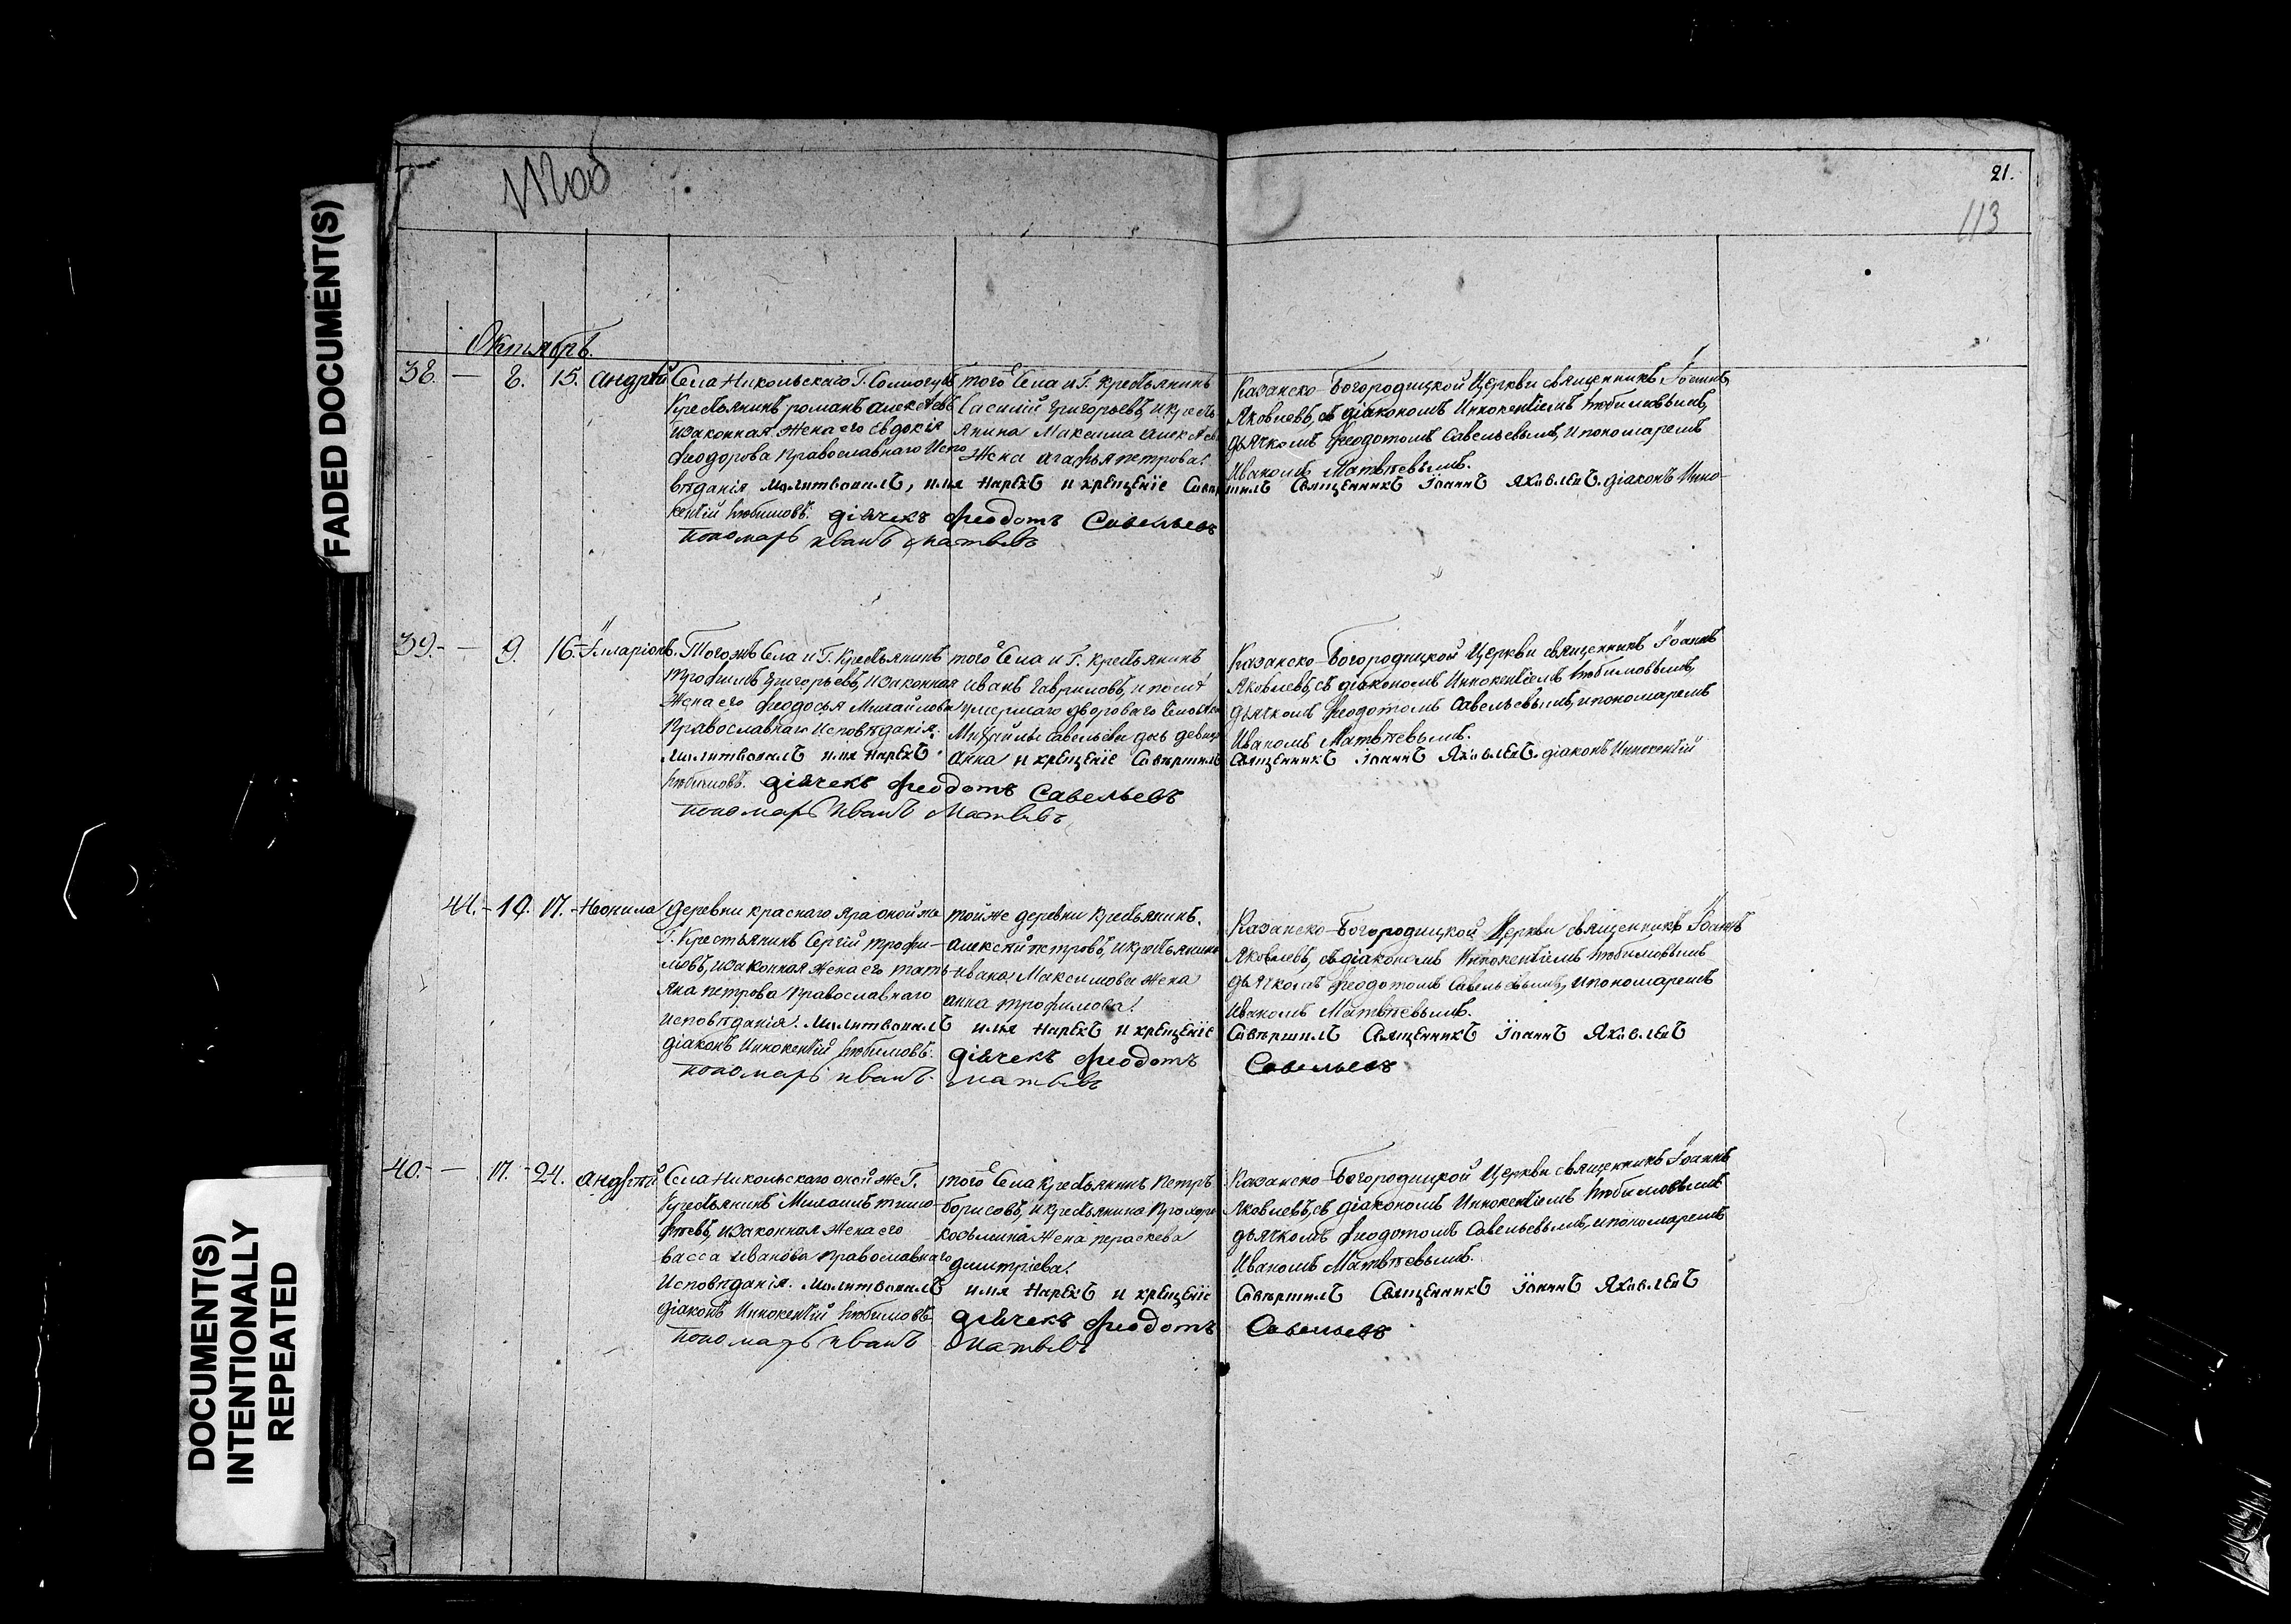 21.
113
FADED DOCUMENT(S)
Октябрь.
38. — 8. 15. Андрей
Села Никольскаго Г.
Крестьянинъ романъ алексѣевъ
изаконная жена его евдокія
феодорова Православнаго Испо
вѣданія Молитвовалъ, имя нарекъ и крещеніе Совершилъ Священникъ Іоаннъ Яковлевъ. діаконъ Инно-
кентій Любимовъ. діячекъ феодотъ Савельевъ
пономарь иванъ матвѣвъ
того села и Г. Крестьянинъ
василій григорьевъ, и кресть
янина Максима алексѣева
жена агафья петрова.
Казанско-Богородицкой Церкви священникъ Іоаннъ
Яковлевъ, съ діакономъ Иннокентіемъ Любимовымъ,
дьячкомъ феодотомъ Савельевымъ, и пономаремъ
Иваномъ Матвѣевымъ.
39. — 9. 16. Іларіонъ.
Тогожъ Села и Г. Крестьянинъ
трофимъ григорьевъ, изаконная
жена его феодосья Михайлова
Православнаго Исповѣданія.
Молитвовалъ имя нарекъ и крещеніе Совершилъ Священникъ Іоаннъ Яковлевъ. діаконъ Иннокентій
Любимовъ. діячекъ феодотъ Савельевъ
пономарь иванъ Матвѣвъ
того села и Г. Крестьянинъ
иванъ гавриловъ, и
умершаго двороваго
Михайлы савельева дочь девица
анна
Казанско-Богородицкой Церкви священникъ Іоаннъ
Яковлевъ, съ діакономъ Иннокентіемъ Любимовымъ,
дьячкомъ феодотомъ Савельевымъ, и пономаремъ
Иваномъ Матвѣевымъ.
44. — 10. 17. Неонила
деревни краснаго Яра оной же
Г. Крестьянинъ Сергій трофи-
мовъ, изаконная жена его тать-
яна петрова Православнаго
исповѣданія. Молитвовалъ имя нарекъ и крещеніе Совершилъ Священникъ Іоаннъ Яковлевъ
діаконъ Иннокентій Любимовъ. діячекъ феодотъ Савельевъ
пономарь иванъ матвѣвъ
тойже деревни Крестьянинъ
алексѣй петровъ, и крестьянина
ивана Максимова жена
анна трофимова.
Казанско-Богородицкой Церкви священникъ Іоаннъ
Яковлевъ, съ діакономъ Иннокентіемъ Любимовымъ
дьячкомъ феодотомъ Савельевымъ, и пономаремъ
Иваномъ Матвѣевымъ.
40. — 17. 24. Андрей
Села Никольскаго оной же Г.
Крестьянинъ Михаилъ тимо-
фѣевъ, изаконная жена его
васса иванова Православнаго
Исповѣданія. Молитвовалъ имя нарекъ и крещеніе Совершилъ Священникъ Іоаннъ Яковлевъ
діаконъ Иннокентій Любимовъ. діячекъ феодотъ Савельевъ
пономарь иванъ матвѣвъ
того села Крестьянинъ Петръ
борисовъ, и крестьянина Прохора
козьмина жена параскева
димитріева.
Казанско-Богородицкой Церкви священникъ Іоаннъ
Яковлевъ, съ діакономъ Иннокентіемъ Любимовымъ
дьячкомъ феодотомъ Савельевымъ, и пономаремъ
Иваномъ Матвѣевымъ.
DOCUMENT(S)
INTENTIONALLY
REPEATED